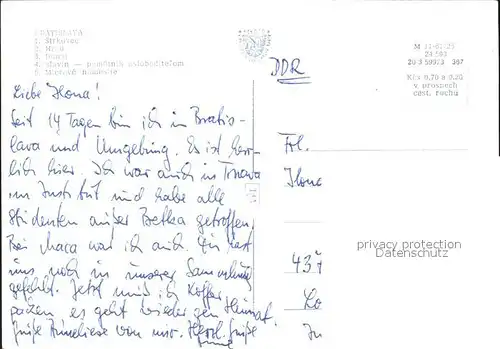 BRATISLAVA
1. Štrkovec
2. Hrad
4. Slavín – pamätník osloboditeľom
DDR
M 11-81-23
Kčs 0,70 a 0,20
v prospech
cest. ruchu
Liebe Ilona!
Seit 14 Tagen bin ich in Bratis-
lava und Umgebung. Es ist herr-
lich hier. Ich war auch in Trnava
im Institut und habe alle
Studenten außer Betka getroffen.
Bei war ich auch. Du hast
uns noch in unserer Sammlung
gefehlt. Jetzt muß ich Koffer
packen es geht wieder gen Heimat.
Grüße Anneliese von mir. Herzl. Grüße
Frl.
Ilona
privacy protection
Datenschutz